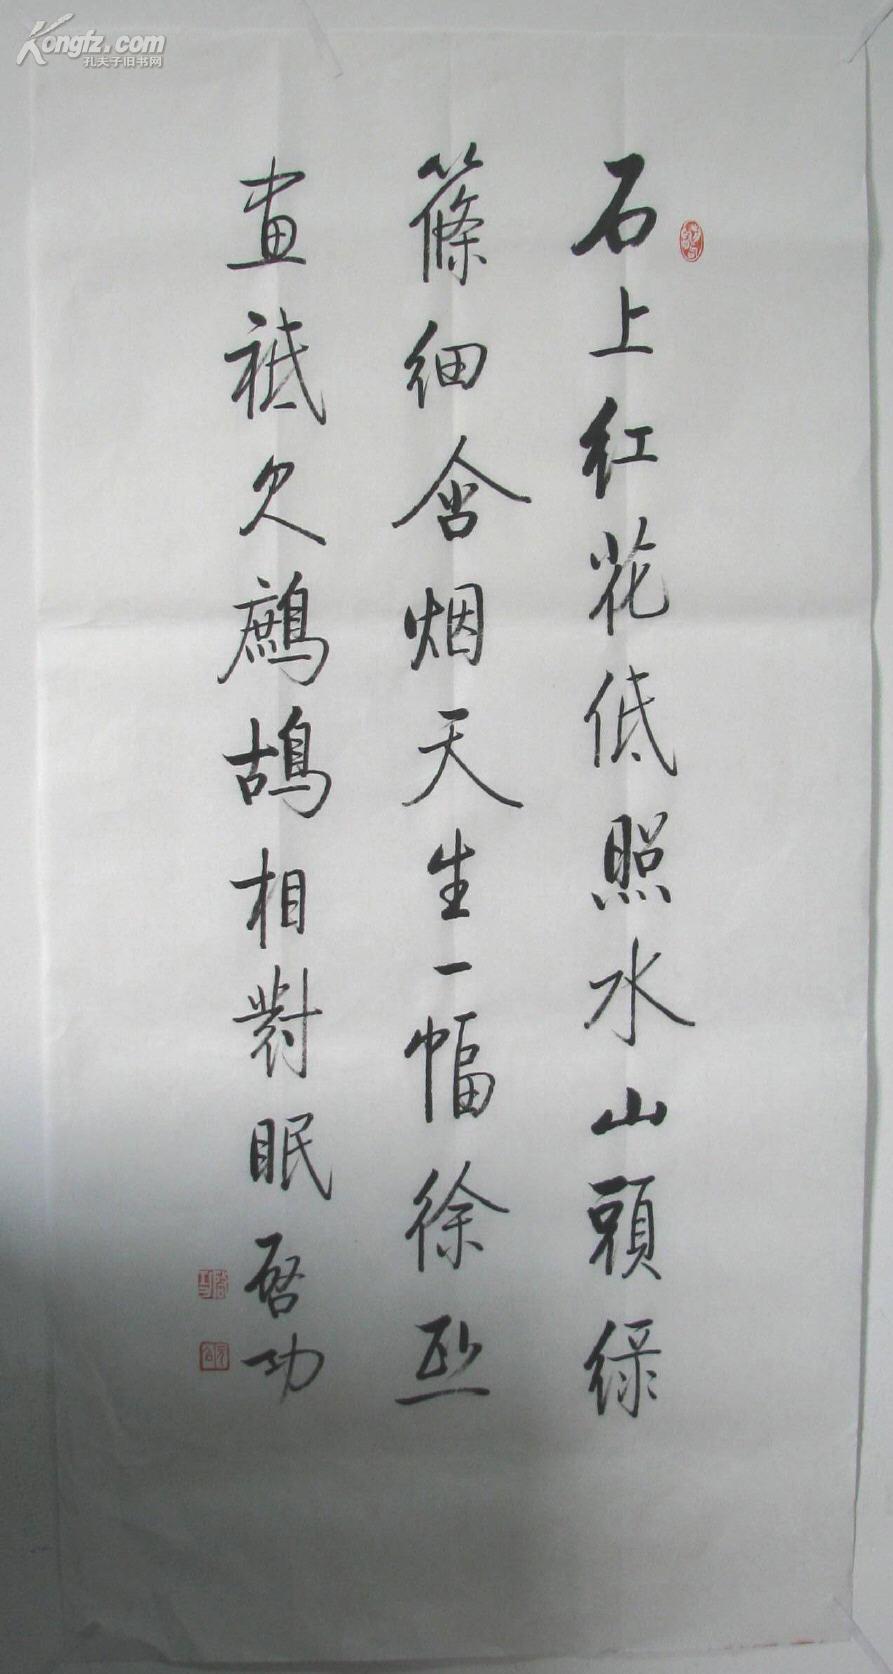 Kongfz.com
孔夫子旧书网
石上红花低照水山頭绿
篠细含烟天生一幅徐熙
画祗欠鷓鴣相對眠
啓功